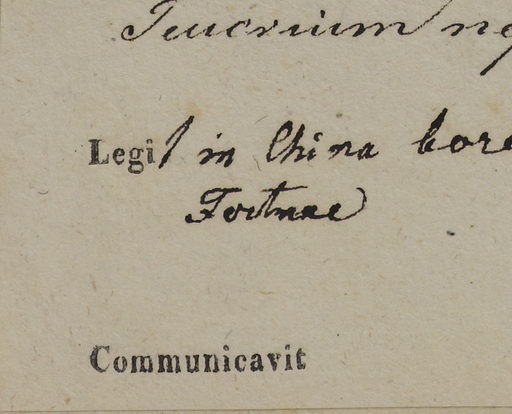 Teucrium
Legit in China bore
Fortune
Communicavit